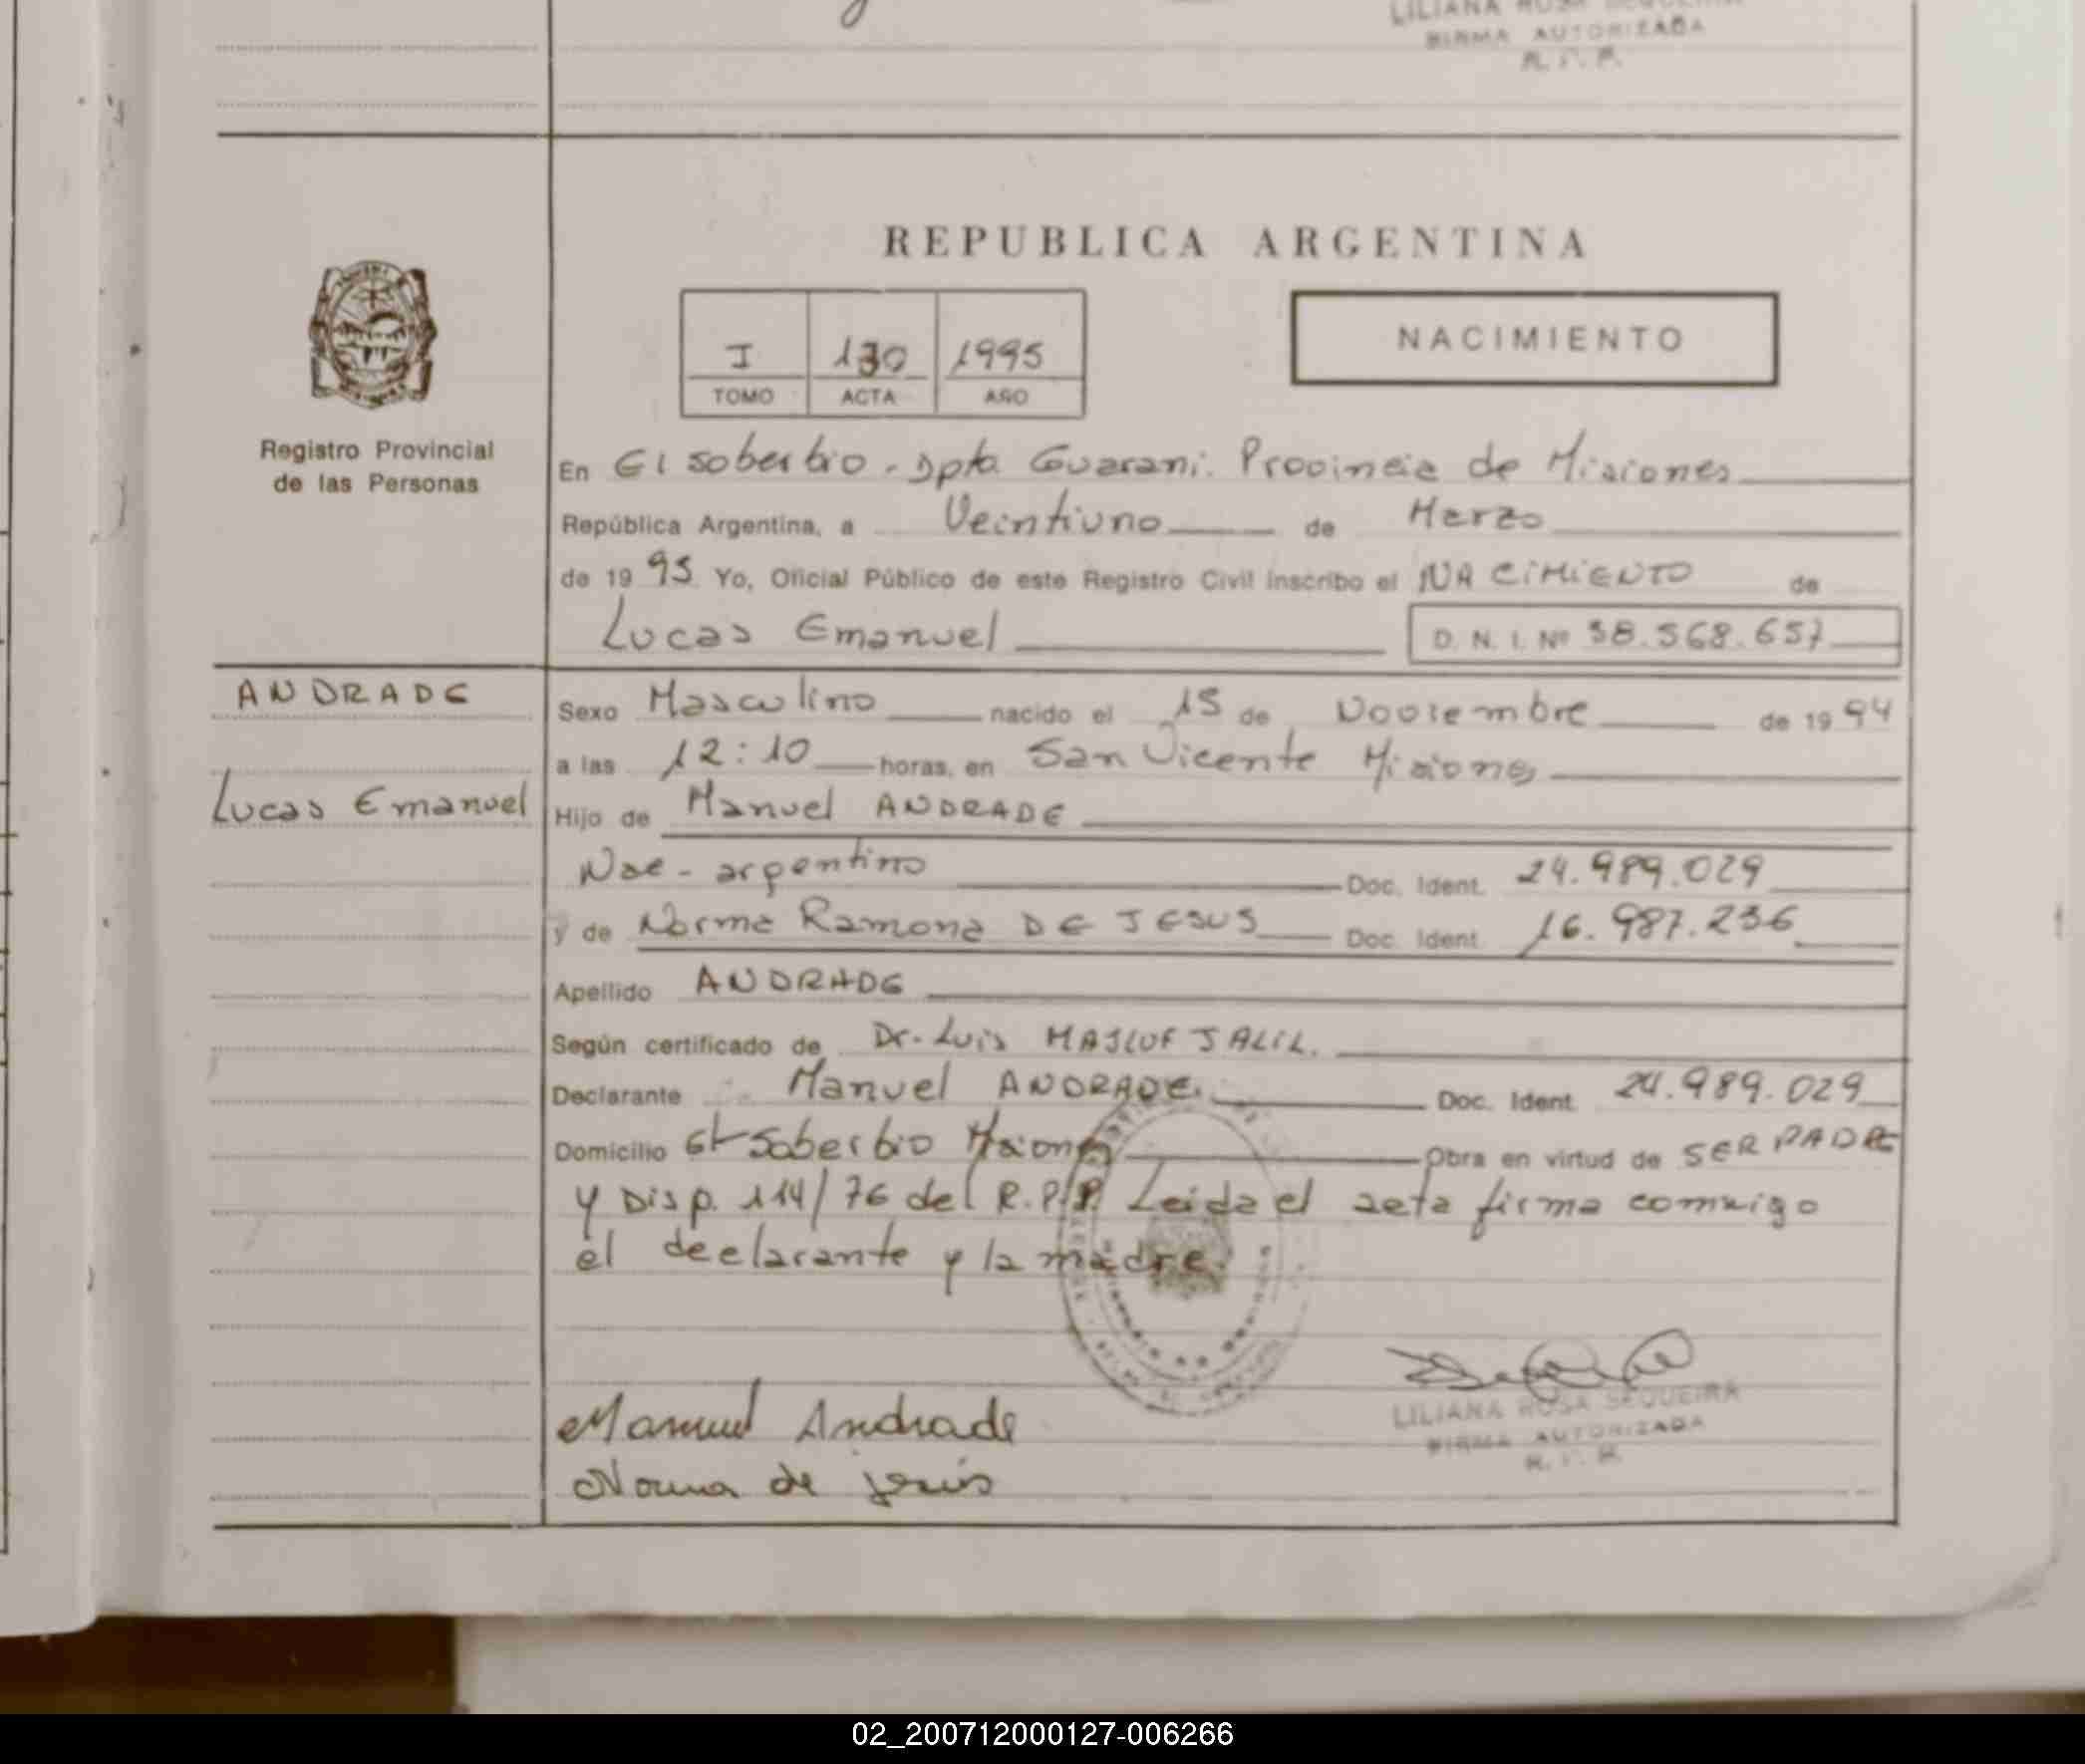 LILIANA ROSA SEQUEIRA
FIRMA AUTORIZADA
R. P. P.
REPUBLICA ARGENTINA
I 130 1995
TOMO ACTA AÑO
NACIMIENTO
Registro Provincial
de las Personas
En El soberbio. Dpto. Guarani. Provincia de Misiones
República Argentina, a Veintiuno de Marzo
de 19 95 Yo, Oficial Público de este Registro Civil inscribo el NACIMIENTO de
Lucas Emanuel D. N. I. Nº 38.568.657
ANDRADE
Lucas Emanuel
Sexo Masculino nacido el 15 de Noviembre de 19 94
a las 12:10 horas, en San Vicente Misiones
Hijo de Manuel ANDRADE
Nac - argentino Doc. Ident. 24.989.029
y de Norma Ramona DE JESUS Doc. Ident. 16.987.236
Apellido ANDRADE
Según certificado de Dr. Luis MASLUF JALIL.
Declarante Manuel ANDRADE. Doc. Ident. 24.989.029
Domicilio El Soberbio Misiones Obra en virtud de SER PADRE
y Disp. 114/76 del R.P.P. Leida el acta firma conmigo
el declarante y la madre.
Manuel Andrade
Norma de jesús
LILIANA ROSA SEQUEIRA
FIRMA AUTORIZADA
R. P. P.
02_200712000127-006266